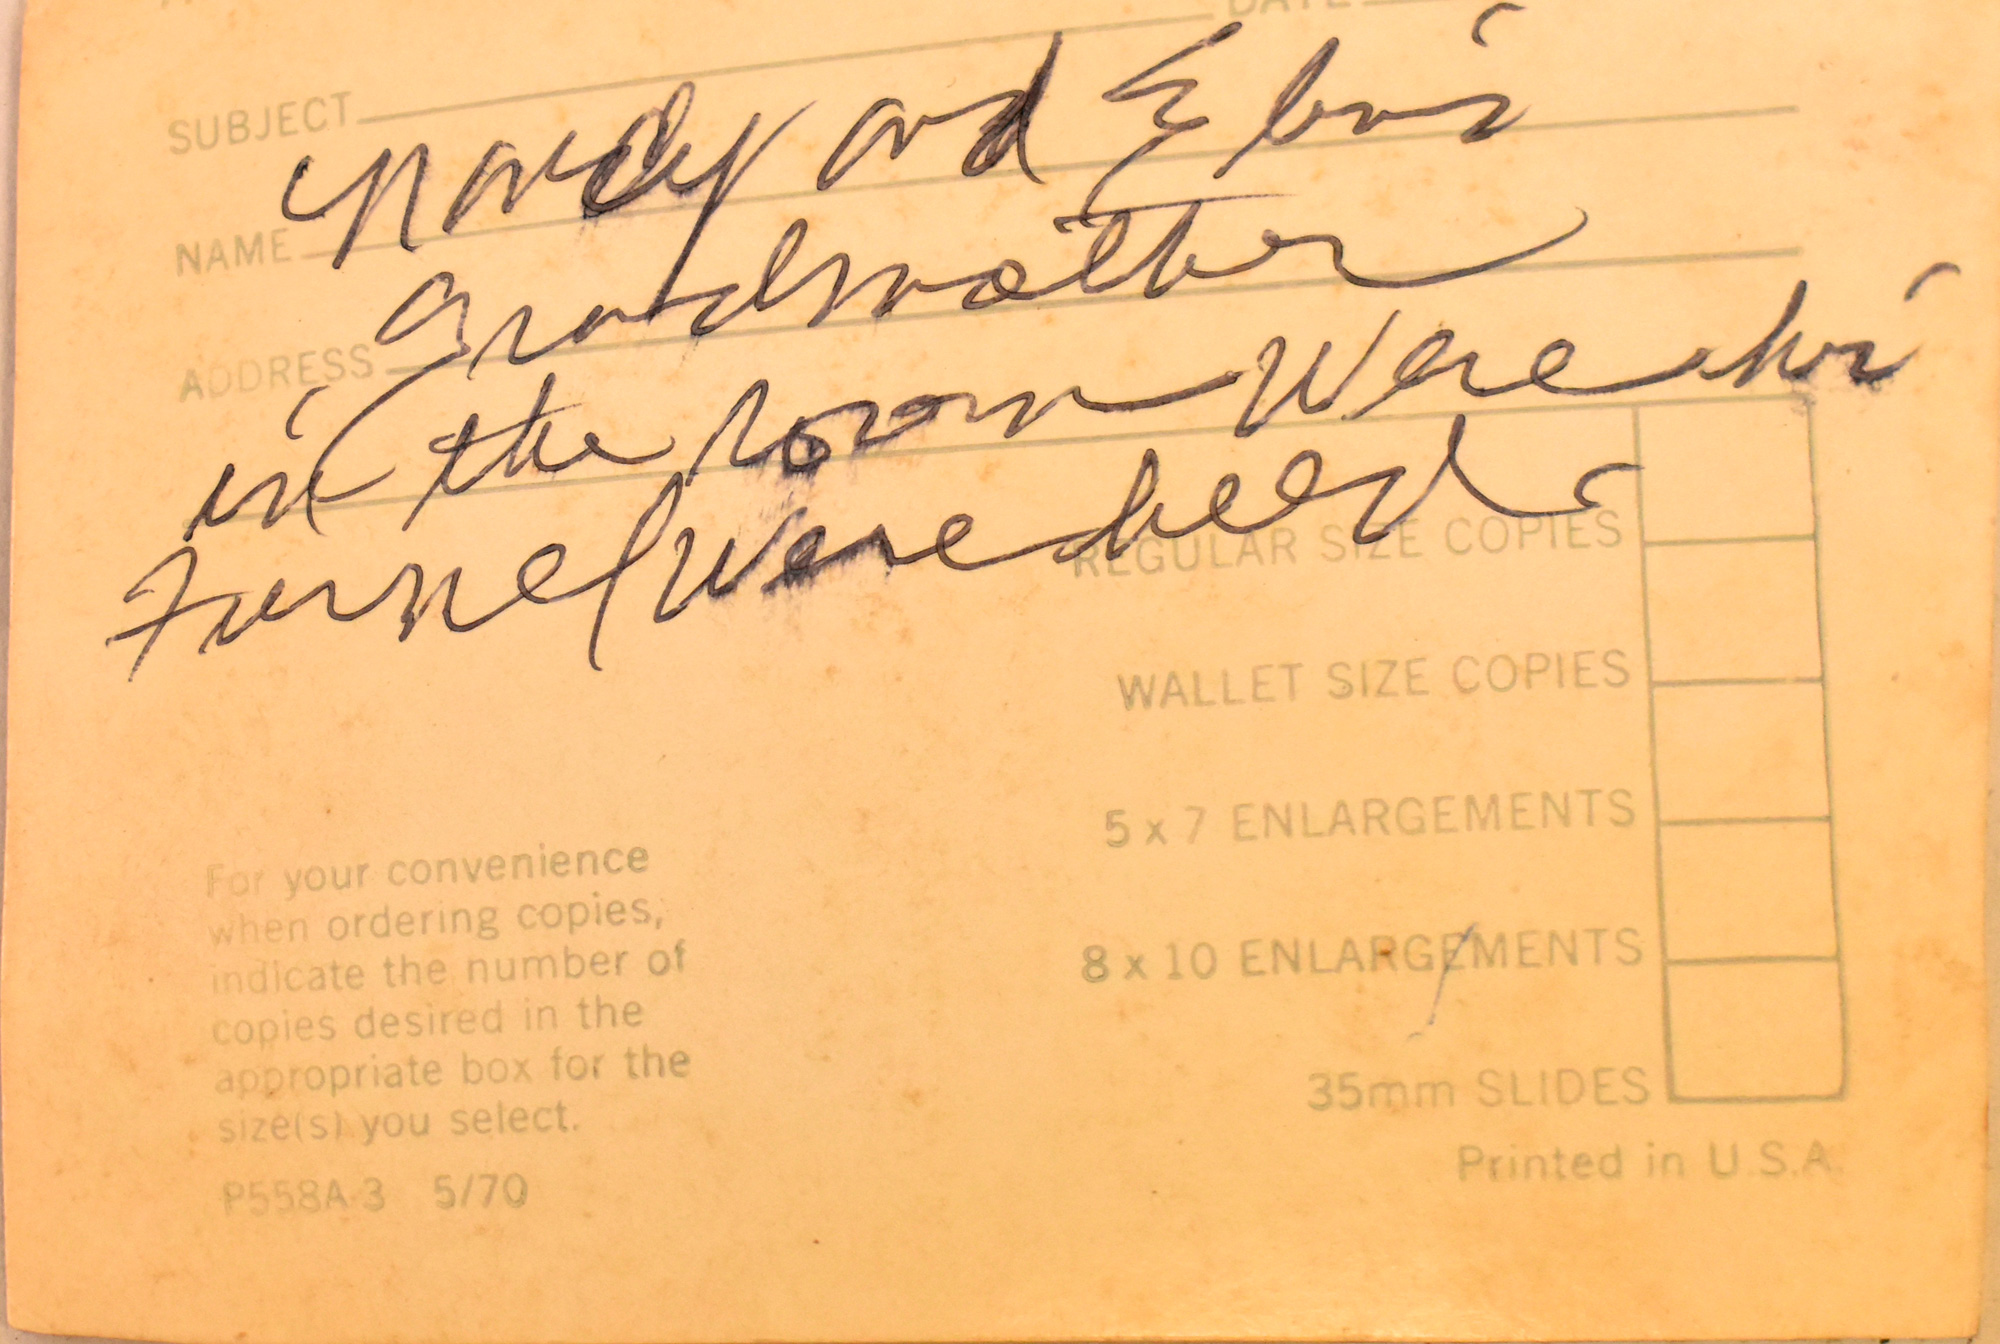 DATE
SUBJECT
and Elvis
NAME
Grandmother
ADDRESS
in the room Were his
Furnel Were heed.
REGULAR SIZE COPIES
WALLET SIZE COPIES
5 x 7 ENLARGEMENTS
8 x 10 ENLARGEMENTS
35mm SLIDES
Printed in U.S.A.
For your convenience
when ordering copies,
indicate the number of
copies desired in the
appropriate box for the
size(s) you select.
P558A-3 5/70